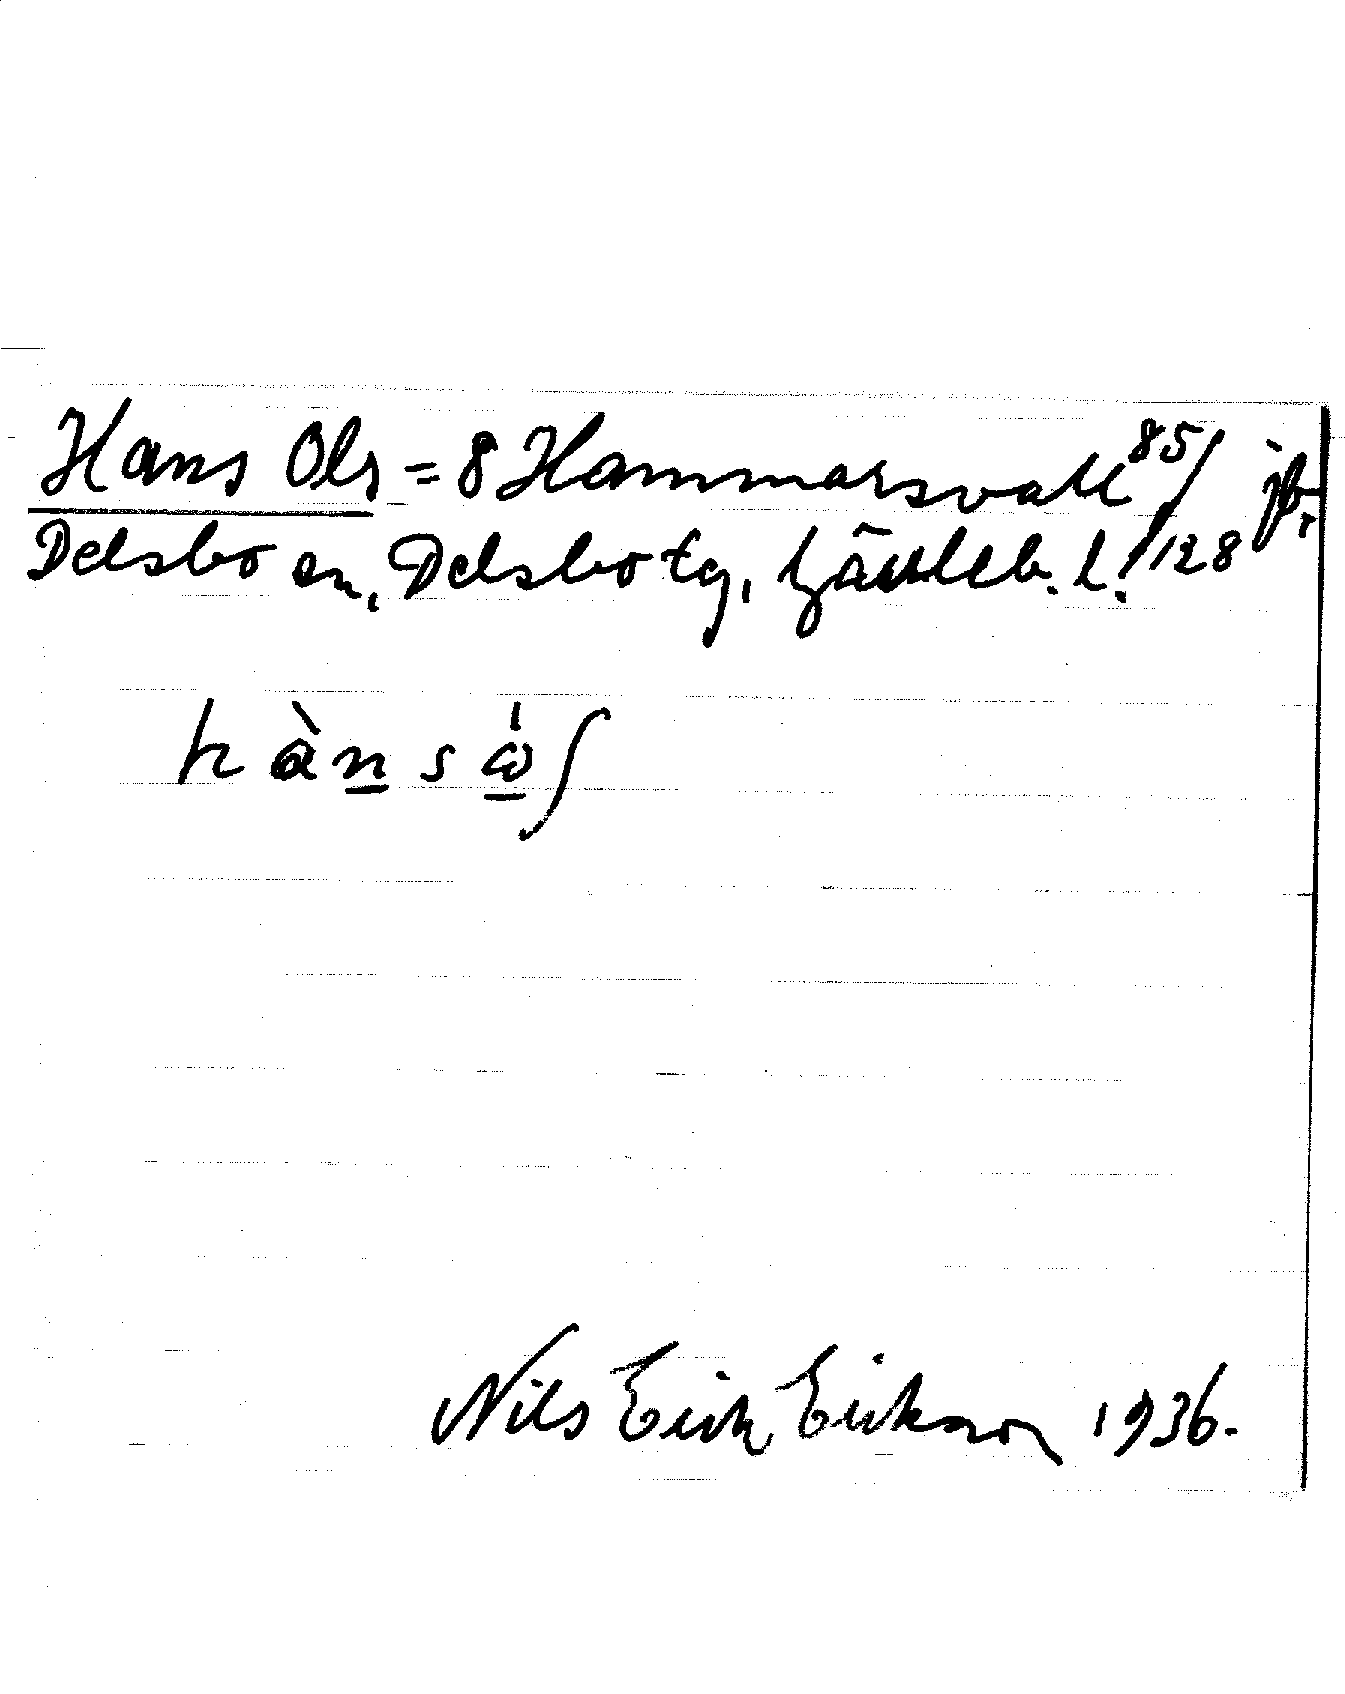 Hans Ols = 8 Hammarsvall 85/128 jb.
Delsbo sn, Delsbo tg, Gävleb. l.
hànsὼʃ
Nils Erik Erikson 1936.